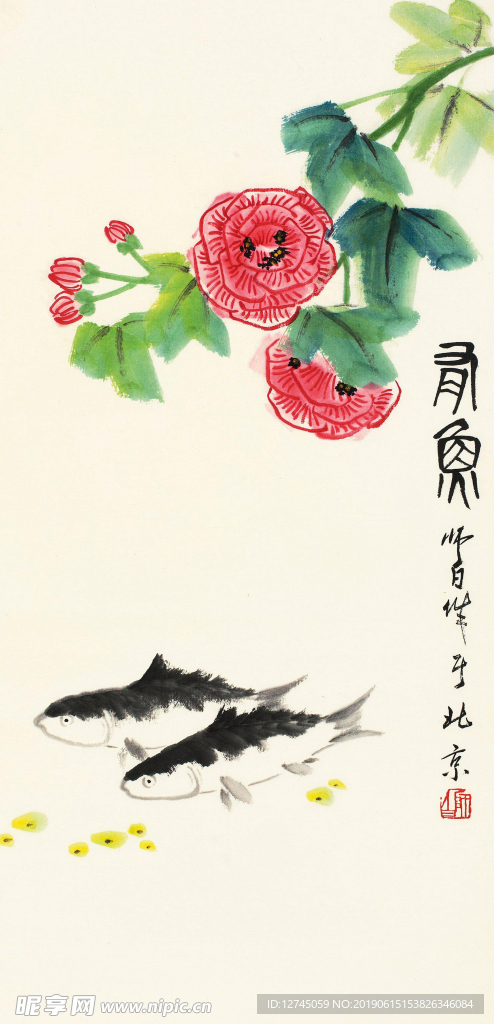 有鱼
师白作于北京
昵享网 www.nipic.cn
ID:12745059 NO:20190615153826346084